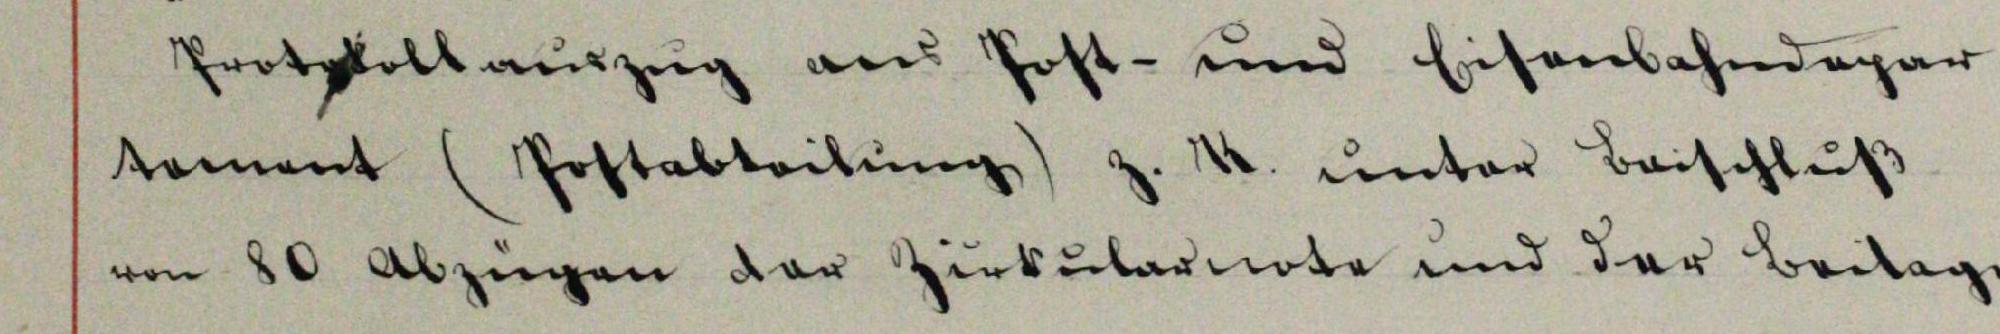 Protokollauszug ans Post- und Eisenbahndepar
tement (Postabteilung) z. K. unter Beischluß
von 80 Abzügen der Zirkularnote und der Beilage